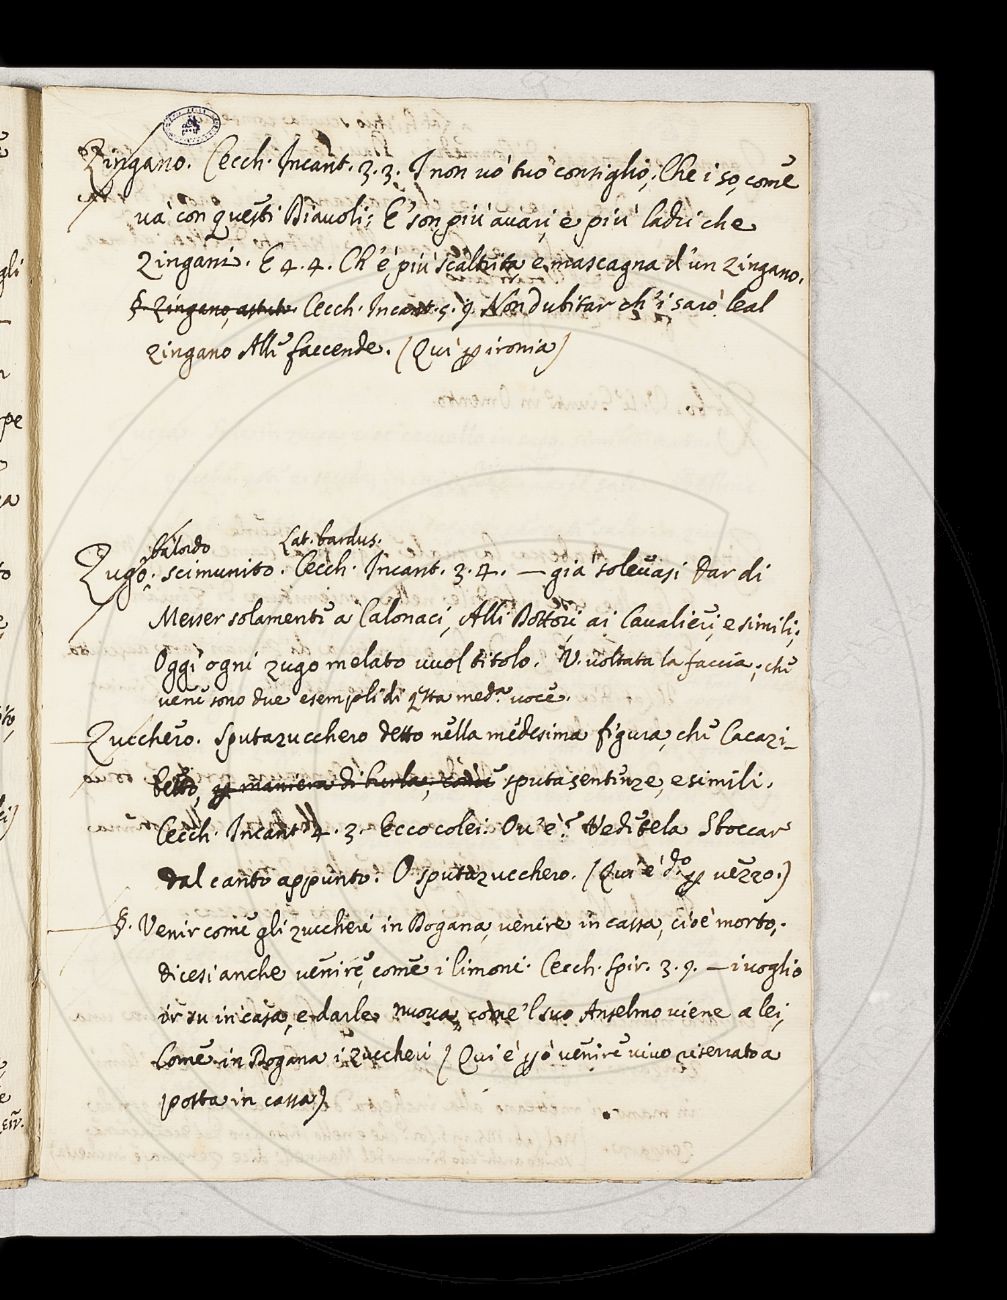 Zingano. Cecch. Incant. 3. 3. I non vo' tuo' consiglio, Che i' so, come
va' con questi Diavoli; E' son più avari, e più ladri che
Zingani. E 4. 4. Ch'è più scaltrita e mascagna d'un Zingano.
§. Zingano, astuto. Cecch. Incant. 5. 9. Non dubitar ch'i' sarò leal
zingano Alle faccende. (Qui p ironia)
balordo Lat. bardus.
Zugo. scimunito. Cecch. Incant. 3. 4. — già solevasi Dar di
Messer solamente a' Calonaci, Alli Dottori ai Cavalieri, e simili;
Oggi ogni zugo melato vuol titolo. V. voltata la faccia, che
vene sono due esempli di qsta meda. voce.
Zucchero. Sputazucchero detto nella medesima figura, che Cacazi-
betto, p maniera di burla, come sputasentenze, e simili.
Cecch. Incant. 4. 3. Ecco colei. Ov'è? Vedetela Sboccar
dal canto appunto. O sputazucchero. (Qui è do. p vezzo.)
§. Venir come gli zuccheri in Dogana, venire in cassa, cioè morto,
dicesi anche venire, come i limoni. Cecch. Spir. 3. 9. — i voglio
ir su in casa, e darle nuova, come 'l suo Anselmo viene a lei,
Come in Dogana i Zuccheri (Qui è pò venire vivo riserrato a
posta in cassa)